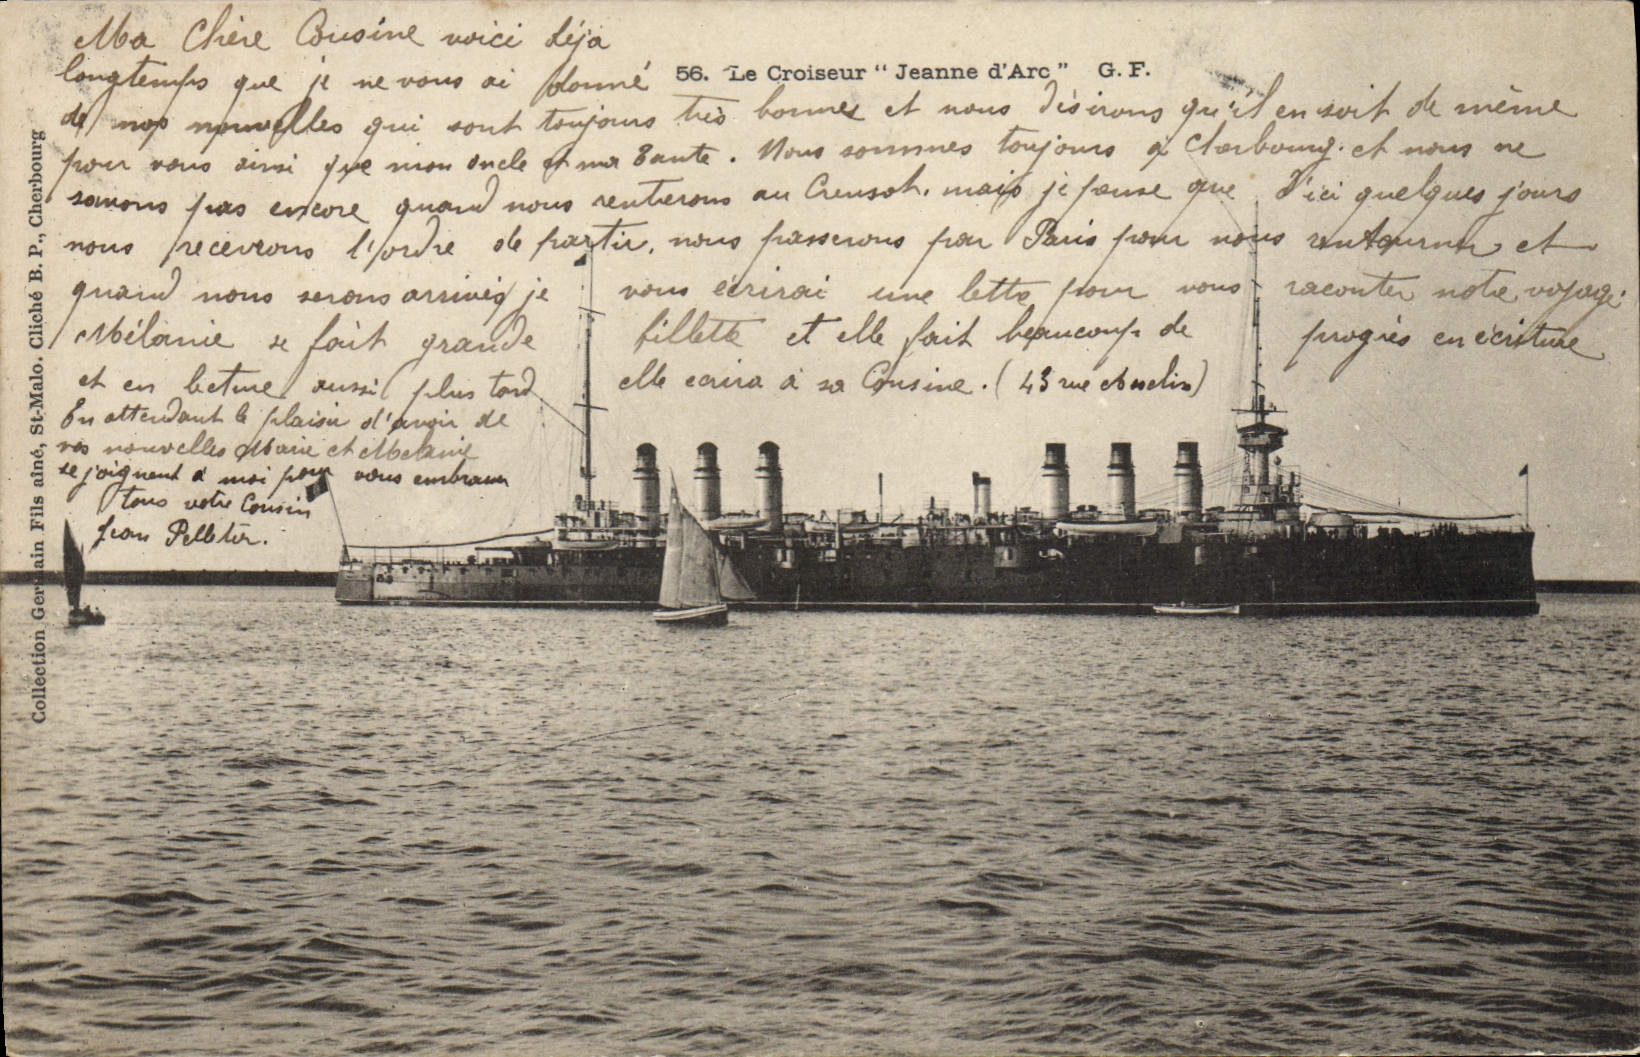 Ma Chère Cousine voici déja
longtemps que je ne vous ai donné
56. Le Croiseur " Jeanne d'Arc " G. F.
de nos nouvelles qui sont toujours très bonnes et nous désirons qu'il en soit de même
pour vous ainsi que mon oncle et ma Tante. Nous sommes toujours a Cherbourg. et nous ne
savons pas encore quand nous rentrerons au Creusot. mais je pense que d'ici quelques jours
nous recevrons l'ordre de partir. nous passerons par Paris pour nous en tourner et
quand nous serons arrivés je vous écrirai une lettre pour vous raconter notre voyage.
Mélanie se fait grande fillette et elle fait beaucoup de progrès en écriture
et en lecture aussi plus tard elle ecrira à sa Cousine. (43 rue Asselin)
En attendant le plaisir d'avoir de
vos nouvelles Marie et Melanie
se joignent à moi pour vous embrasser
tous votre Cousin
Jean Pelletier.
Collection Germain Fils aîné, St-Malo. Cliché B. P., Cherbourg